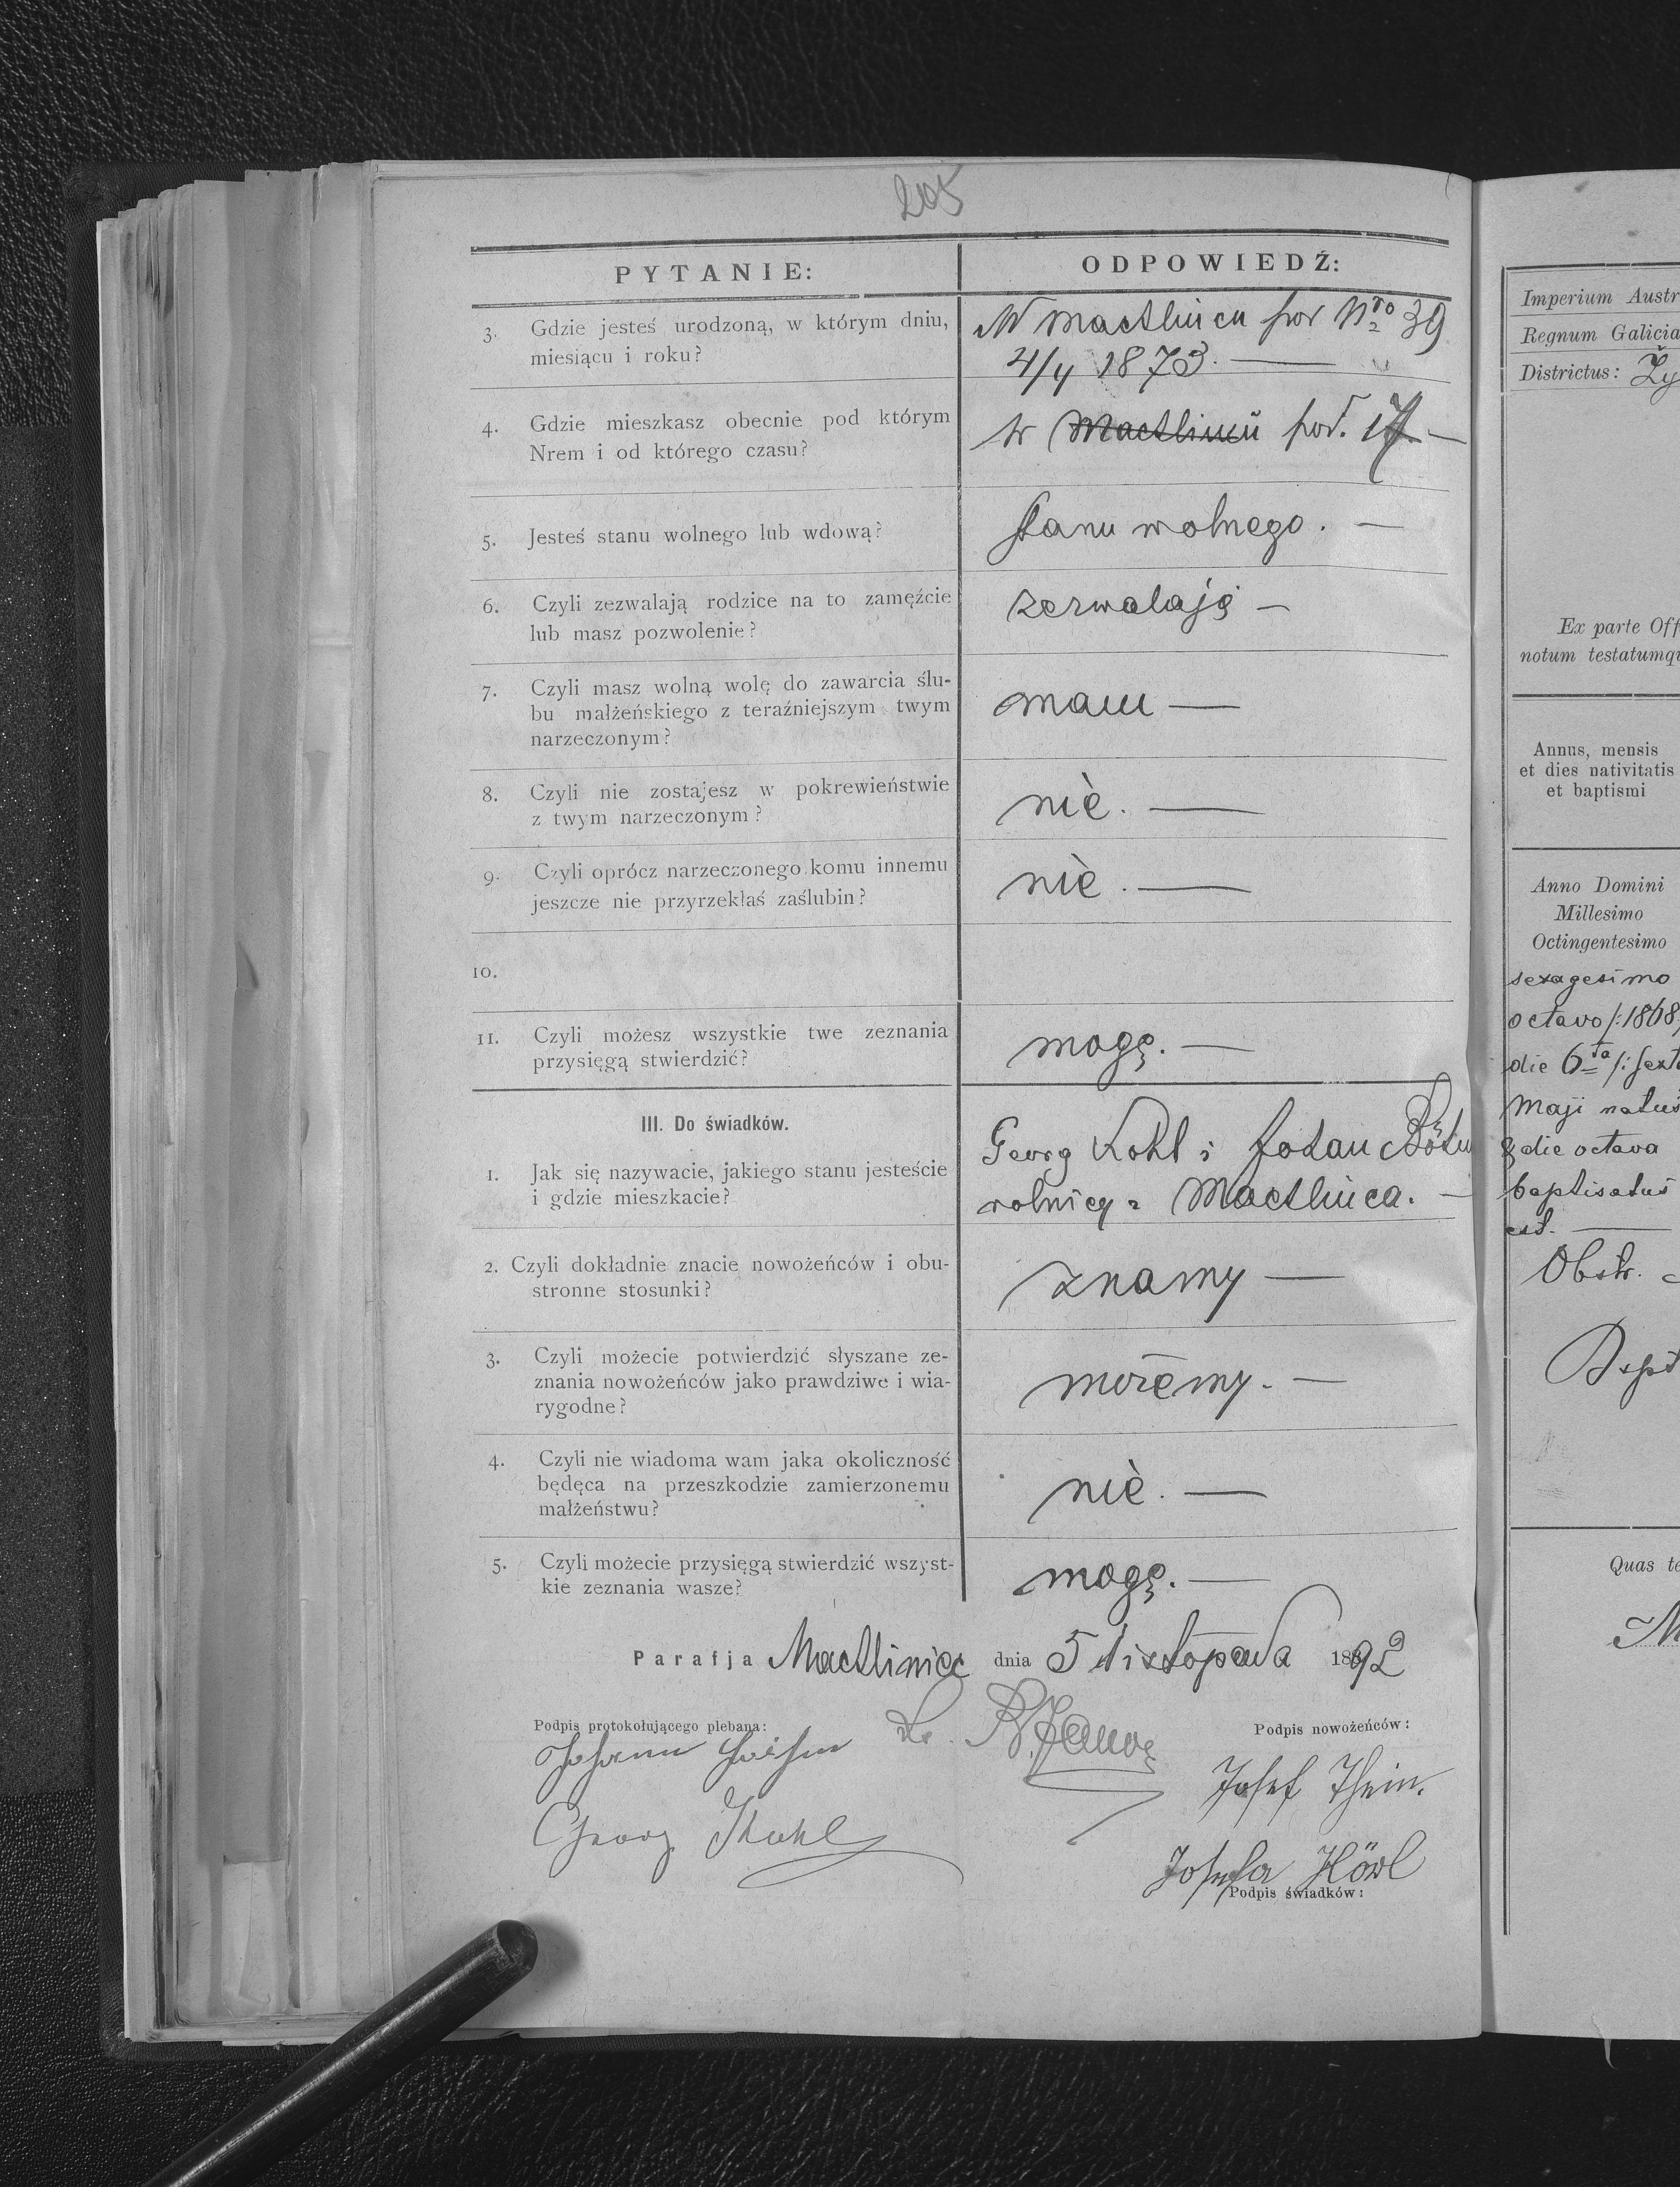 205
PYTANIE:
ODPOWIEDŹ:
3. Gdzie jesteś urodzoną, w którym dniu,
miesiącu i roku?
W Machlincu pod Nro 39
4/4 1873. —
4. Gdzie mieszkasz obecnie pod którym
Nrem i od którego czasu?
w Machlincu pod. 17. —
5. Jesteś stanu wolnego lub wdową?
stanu wolnego. —
6. Czyli zezwalają rodzice na to zamęźcie
lub masz pozwolenie?
zezwalają —
7. Czyli masz wolną wolę do zawarcia ślu-
bu małżeńskiego z teraźniejszym twym
narzeczonym?
mam —
8. Czyli nie zostajesz w pokrewieństwie
z twym narzeczonym?
nie. —
9. Czyli oprócz narzeczonego komu innemu
jeszcze nie przyrzekłaś zaślubin?
nie. —
10.
11. Czyli możesz wszystkie twe zeznania
przysięgą stwierdzić?
mogę. —
III. Do świadków.
1. Jak się nazywacie, jakiego stanu jesteście
i gdzie mieszkacie?
Georg Kohl i
rolnicy z Machlinca. —
2. Czyli dokładnie znacie nowożeńców i obu-
stronne stosunki?
znamy —
3. Czyli możecie potwierdzić słyszane ze-
znania nowożeńców jako prawdziwe i wia-
rygodne?
możemy. —
4. Czyli nie wiadoma wam jaka okoliczność
będęca na przeszkodzie zamierzonemu
małżeństwu?
nie. —
5. Czyli możecie przysięgą stwierdzić wszyst-
kie zeznania wasze?
mogę. —
Parafja Machliniec dnia 5 listopada 1892
Podpis protokołującego plebana:
Podpis nowożeńców:
Johann
Josef Thein.
Georg Kohl
Josefa Höwl
Podpis świadków:
Imperium Austr
Regnum Galicia
Districtus: Ży
Ex parte Off
notum testatumqu
Annus, mensis
et dies nativitatis
et baptismi
Anno Domini
Millesimo
Octingentesimo
sexagesimo
octavo /:1868
die 6ta /: sexta
Maji natus
& die octava
baptisatus
est. —
Obstr.
Bapt
Quas te
M